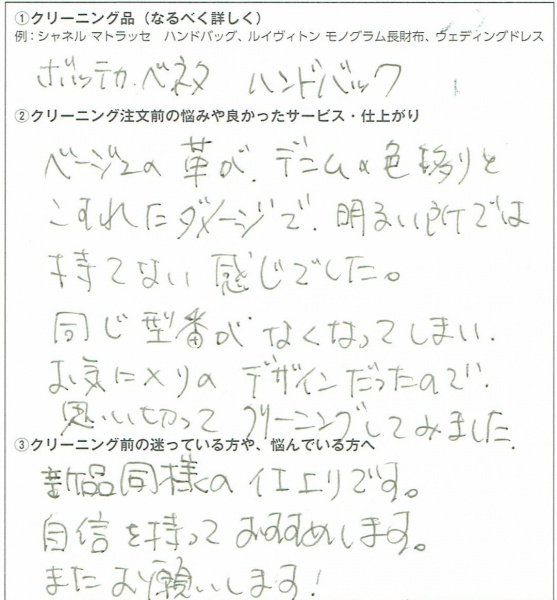 ①クリーニング品（なるべく詳しく）
例：シャネル マトラッセ　ハンドバッグ、ルイヴィトン モノグラム長財布、ウェディングドレス
ボッテガ ベネタ　ハンドバック
②クリーニング注文前の悩みや良かったサービス・仕上がり
ベージュの革が、デニムの色移りと
こすれたダメージで、明るい所では
持てない感じでした。
同じ型番がなくなってしまい、
お気に入りのデザインだったので、
思い切ってクリーニングしてみました。
③クリーニング前の迷っている方や、悩んでいる方へ
新品同様の仕上りです。
自信を持っておすすめします。
またお願いします！